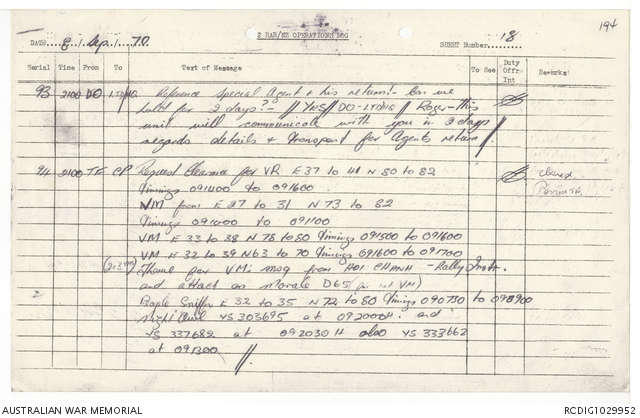 194
2 RAR/NZ OPERATIONS LOG
DATE 8 / Sep / 70 SHEET Number 18
Serial Time From To Text of Message To See Duty Offr- Int Remarks:
93 2100 DO Reference Special Agent & his return:- Can we
hold for 2 days?? // YES // DO- // Roger - this
unit will communicate with you in 2 days
regards details & transport for Agents return. //
94 2100 TF CP Request Clearance for VR E 37 to 41 N 80 to 82
timings 091400 to 091600.
VM from E 27 to 31 N 73 to 82
timings 091000 to 091100
VM E 33 to 38 N 78 to 80 timings 091500 to 091600
VM E 32 to 39 N 63 to 70 timings 091600 to 091700
Theme per VMi msg from HOI CHANH - Rally Instr.
and attack on morale D65
People Sniffer E 32 to 35 N 72 to 80 timings 090730 to 090900
Night YS 303695 at 092000H. and
YS 337682 at 092030H also YS 333662
at 091300 //
AUSTRALIAN WAR MEMORIAL RCDIG1029952